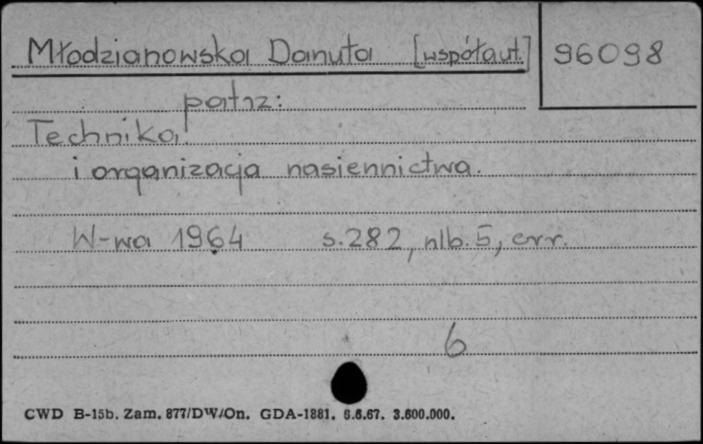 Młodzianowska Danuta [współaut.] 96098
patrz:
Technika
i organizacja nasiennictwa.
W-wa 1964 s.282, nlb.5, err.
6
CWD B-15b. Zam. 877/DW/On. GDA-1881. 6.6.67. 3.600.000.